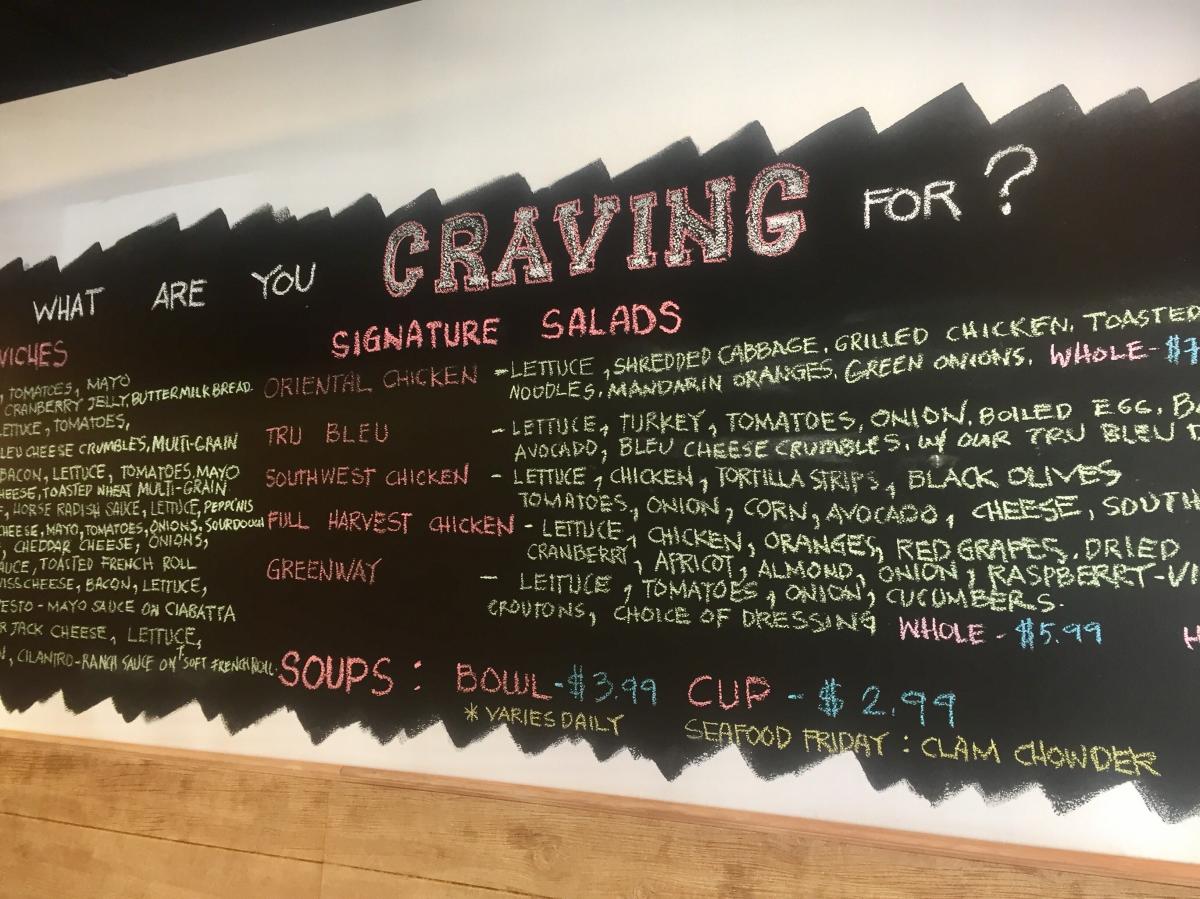 WHAT ARE YOU CRAVING FOR?
TOMATOES, MAYO
CRANBERRY JELLY, BUTTERMILK BREAD.
LETTUCE, TOMATOES,
CHEESE CRUMBLES, MULTI-GRAIN
BACON, LETTUCE, TOMATOES, MAYO
TOASTED WHEAT MULTI-GRAIN
HORSE RADISH SAUCE, LETTUCE,
CHEESE, MAYO, TOMATOES, ONIONS, SOURDOUGH
CHEDDAR CHEESE, ONIONS,
TOASTED FRENCH ROLL
CHEESE, BACON, LETTUCE,
- MAYO SAUCE ON CIABATTA
JACK CHEESE, LETTUCE,
CILANTRO-RANCH SAUCE ON SOFT FRENCH ROLL.
SIGNATURE SALADS
ORIENTAL CHICKEN - LETTUCE, SHREDDED CABBAGE, GRILLED CHICKEN, TOASTED
NOODLES, MANDARIN ORANGES, GREEN ONIONS. WHOLE - $7
TRU BLEU - LETTUCE, TURKEY, TOMATOES, ONION, BOILED EGG,
AVOCADO, BLEU CHEESE CRUMBLES. W/ OUR TRU BLEU
SOUTHWEST CHICKEN - LETTUCE, CHICKEN, TORTILLA STRIPS, BLACK OLIVES
TOMATOES, ONION, CORN, AVOCADO, CHEESE,
FULL HARVEST CHICKEN - LETTUCE, CHICKEN, ORANGES, RED GRAPES, DRIED
CRANBERRY, APRICOT, ALMOND, ONION,
GREENWAY - LETTUCE, TOMATOES, ONION, CUCUMBERS.
CROUTONS, CHOICE OF DRESSING WHOLE - $5.99
SOUPS: BOWL - $3.99 CUP - $2.99
* VARIES DAILY SEAFOOD FRIDAY: CLAM CHOWDER